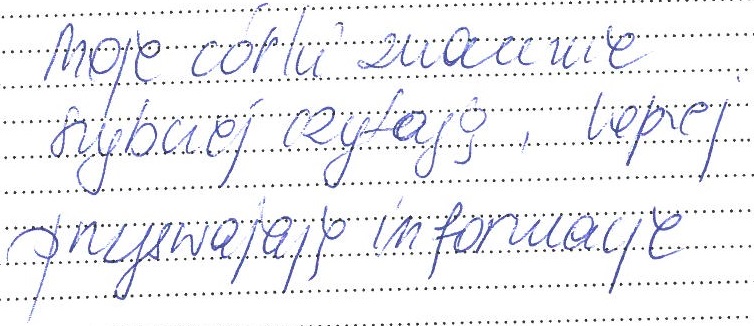 Moje córki znacznie
szybciej czytają, lepiej
przyswajają informacje